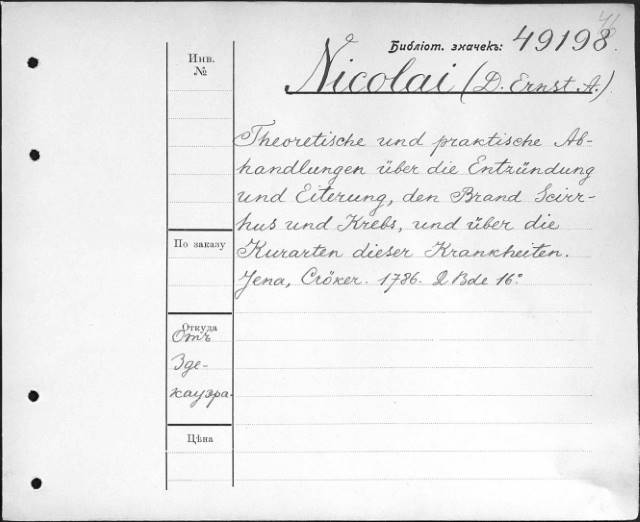 46
Библіот. значекъ: 49198.
Инв. №
Nicolai (D. Ernst A.)
Theoretische und praktische Ab-
handlungen über die Entzündung
und Eiterung, den Brand Scirr-
hus und Krebs, und über die
Kurarten dieser Krankheiten.
Jena, Cröker. 1786. 2 Bde 16°
По заказу
Откуда
Отъ
Зде-
кауэра.
Цѣна